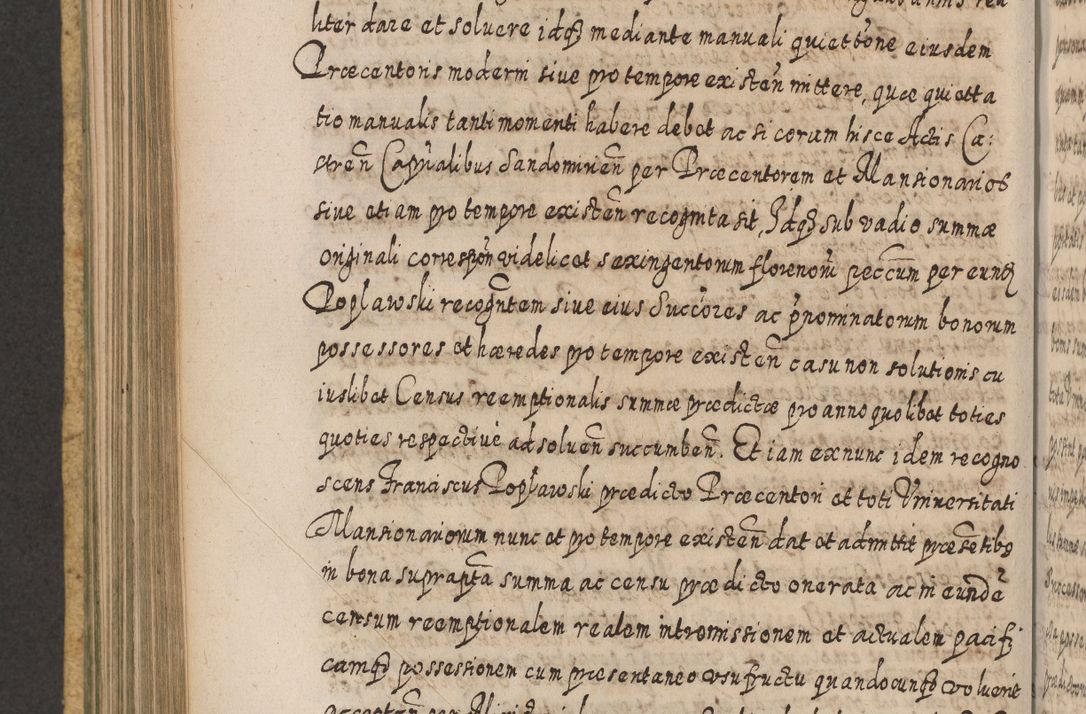 liter dare et soluere idq₃ mediante manuali quiettõne eiusdem
Præcentoris moderni siue pro tempore existeñ mittere, quæ quietta
tio manualis tanti momenti habere debet ac si coram hisce Actis Ca:
streñ Capũalibus Sandomirieñ per Præcentorem et Mansionarios
siue etiam pro tempore existeñ recognita sit, Idq₃ sub vadio summæ
originali correspoñ videlicet sexingentorum florenorũ peccũm per eund₃
Poplawski recogñtem siue eius Succ̃ores ac p̃nominatorum bonorum
possessores et hæredes pro tempore existeñ casu non solutionis cu
iuslibet Census reemptionalis summæ prædictæ pro anno quolibet toties
quoties respectiuè adsolueñ succumbeñ. Et iam ex nunc idem recogno
scens Franciscus Poplawski prædicto Præcentori et toti Vniuersitati
Mansionariorum nunc et pro tempore existeñ dat et admittit præsẽtibq
in bona suprap̃ta summa ac censu prædicto onerata ac in eundẽ
censum reemptionalem realem intromissionem et actualem pacifi
camq₃ possessionem cum præsentaneo vsufructu quandocunq₃ voluerit